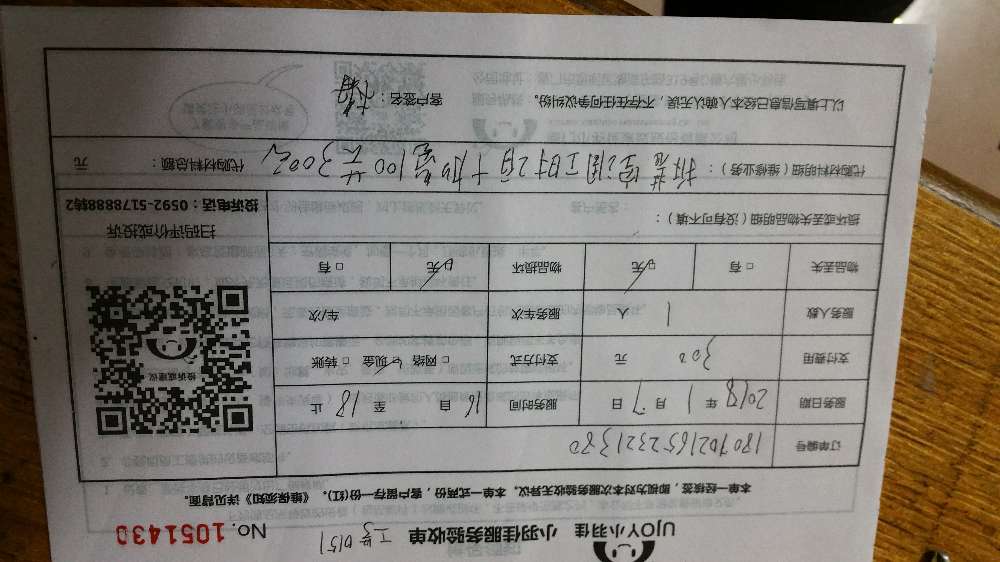 UJOY小羽佳 小羽佳服务验收单 工号0151 No. 1051430
本单一经核签,即视为对本次服务验收无异议。本单一式两份,客户留存一份(红)。《维保须知》详见背面。
订单编号 1807021652321380
服务日期 2018年1月7日 服务时间 自16至18止
支付费用 300元 支付方式 □网络 ☑现金 □转账
服务人数 1人 服务车次 车/次
物品丢失 □有 ☑无 物品损坏 ☑无 □有
损坏或丢失物品明细(没有可不填):
投诉或建议
扫码评价或投诉
投诉电话:0592-5178888转2
代购材料明细(维修业务): 拆装空调工时2百+加管100元 共300元 代购材料总额: 元
以上填写信息已经本人确认无误,不存在任何争议纠纷。 客户签名: